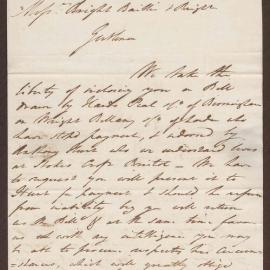 Mess.rs Bright Baillie & Bright
Gentlemen
We take the
liberty of inclosing you a Bill
drawn by Neal of Birmingham
on Wright Bellamy of London who
have stop'd payment, & indorsed by
who we understand lives
at Bristol - We have
to request you will present it to
for payment & should he refuse
from inability to pay you will return
us the Bill & at the same time favor
us with any intelligence you may
be able to procure respecting his circum
-stances, which will greatly oblige